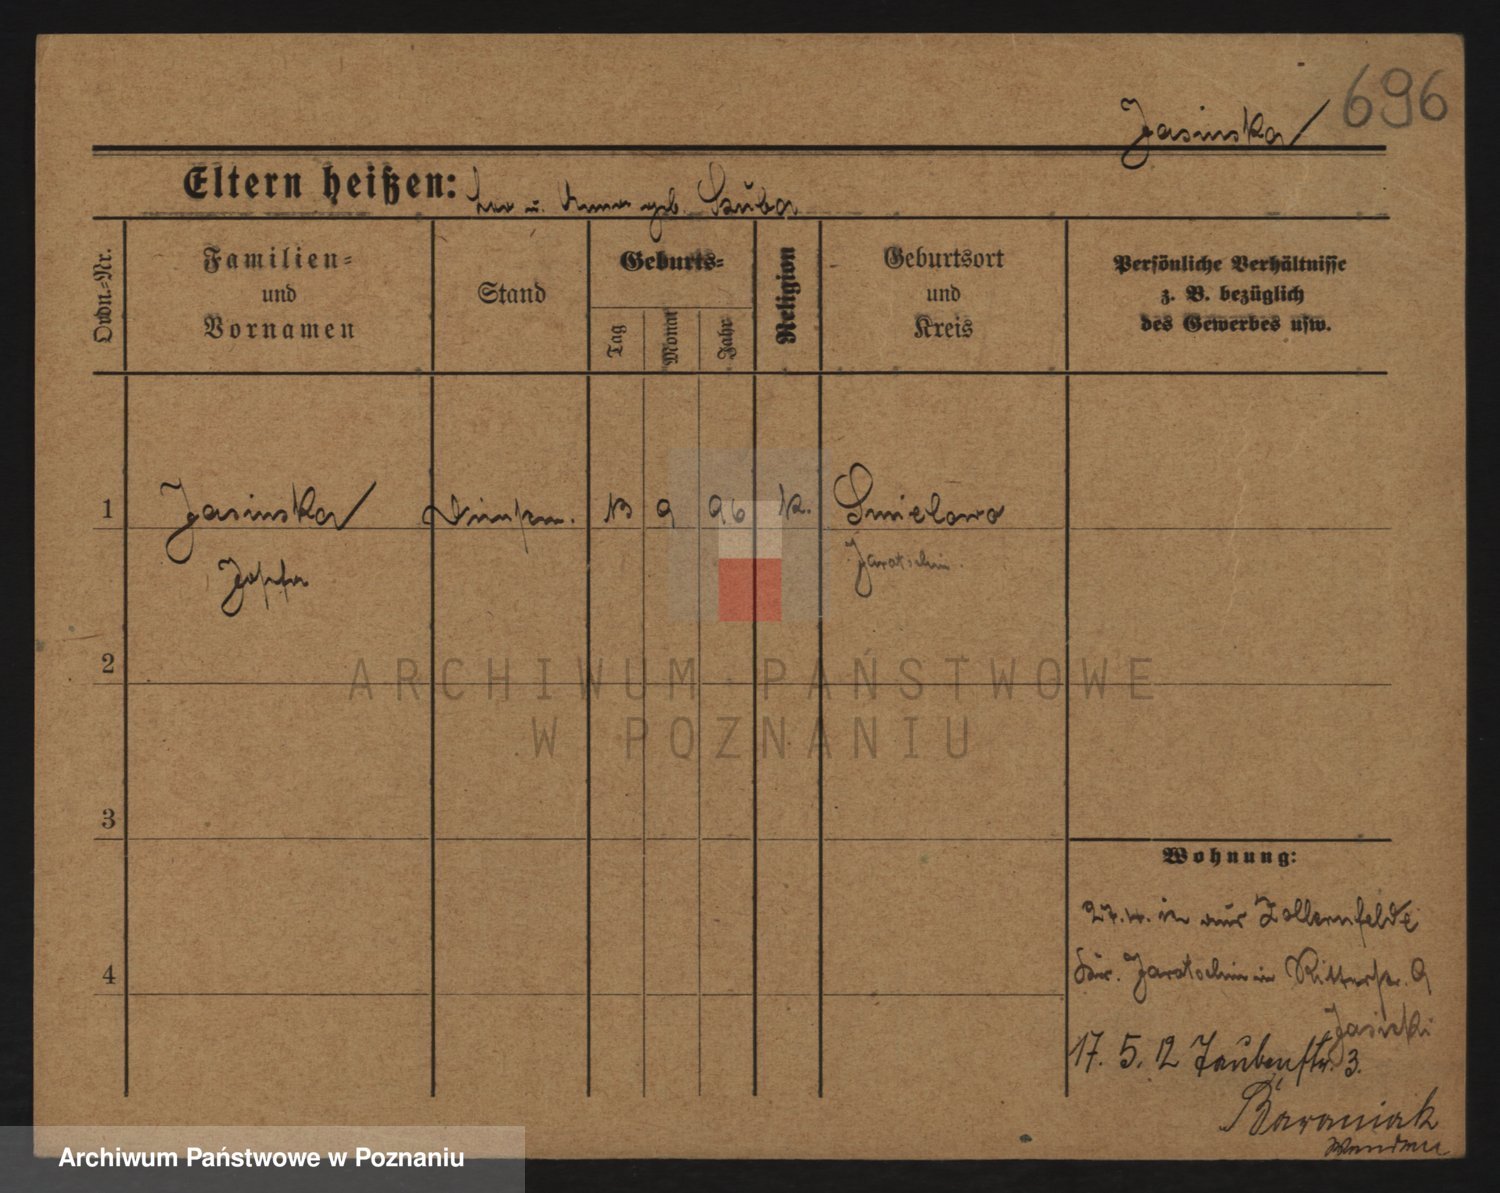 696
Jasinska
Eltern heißen: u. geb. Skuba
Ordn.-Nr.
Familien-
und
Vornamen
Stand
Geburts-
Tag
Monat
Jahr
Religion
Geburtsort
und
Kreis
Persönliche Verhältnisse
z. B. bezüglich
des Gewerbes usw.
1 Jasinska 13 9 96 K. Smielowo
Josefa Jaratschin.
ARCHIWUM PAŃSTWOWE
W POZNANIU
2
3
4
Wohnung:
27.4. in aus Zollernfelde
Jaratschin in Ritterstr. 9
Jasicki
17. 5. 12 Taubenstr. 3.
Baraniak
Archiwum Państwowe w Poznaniu